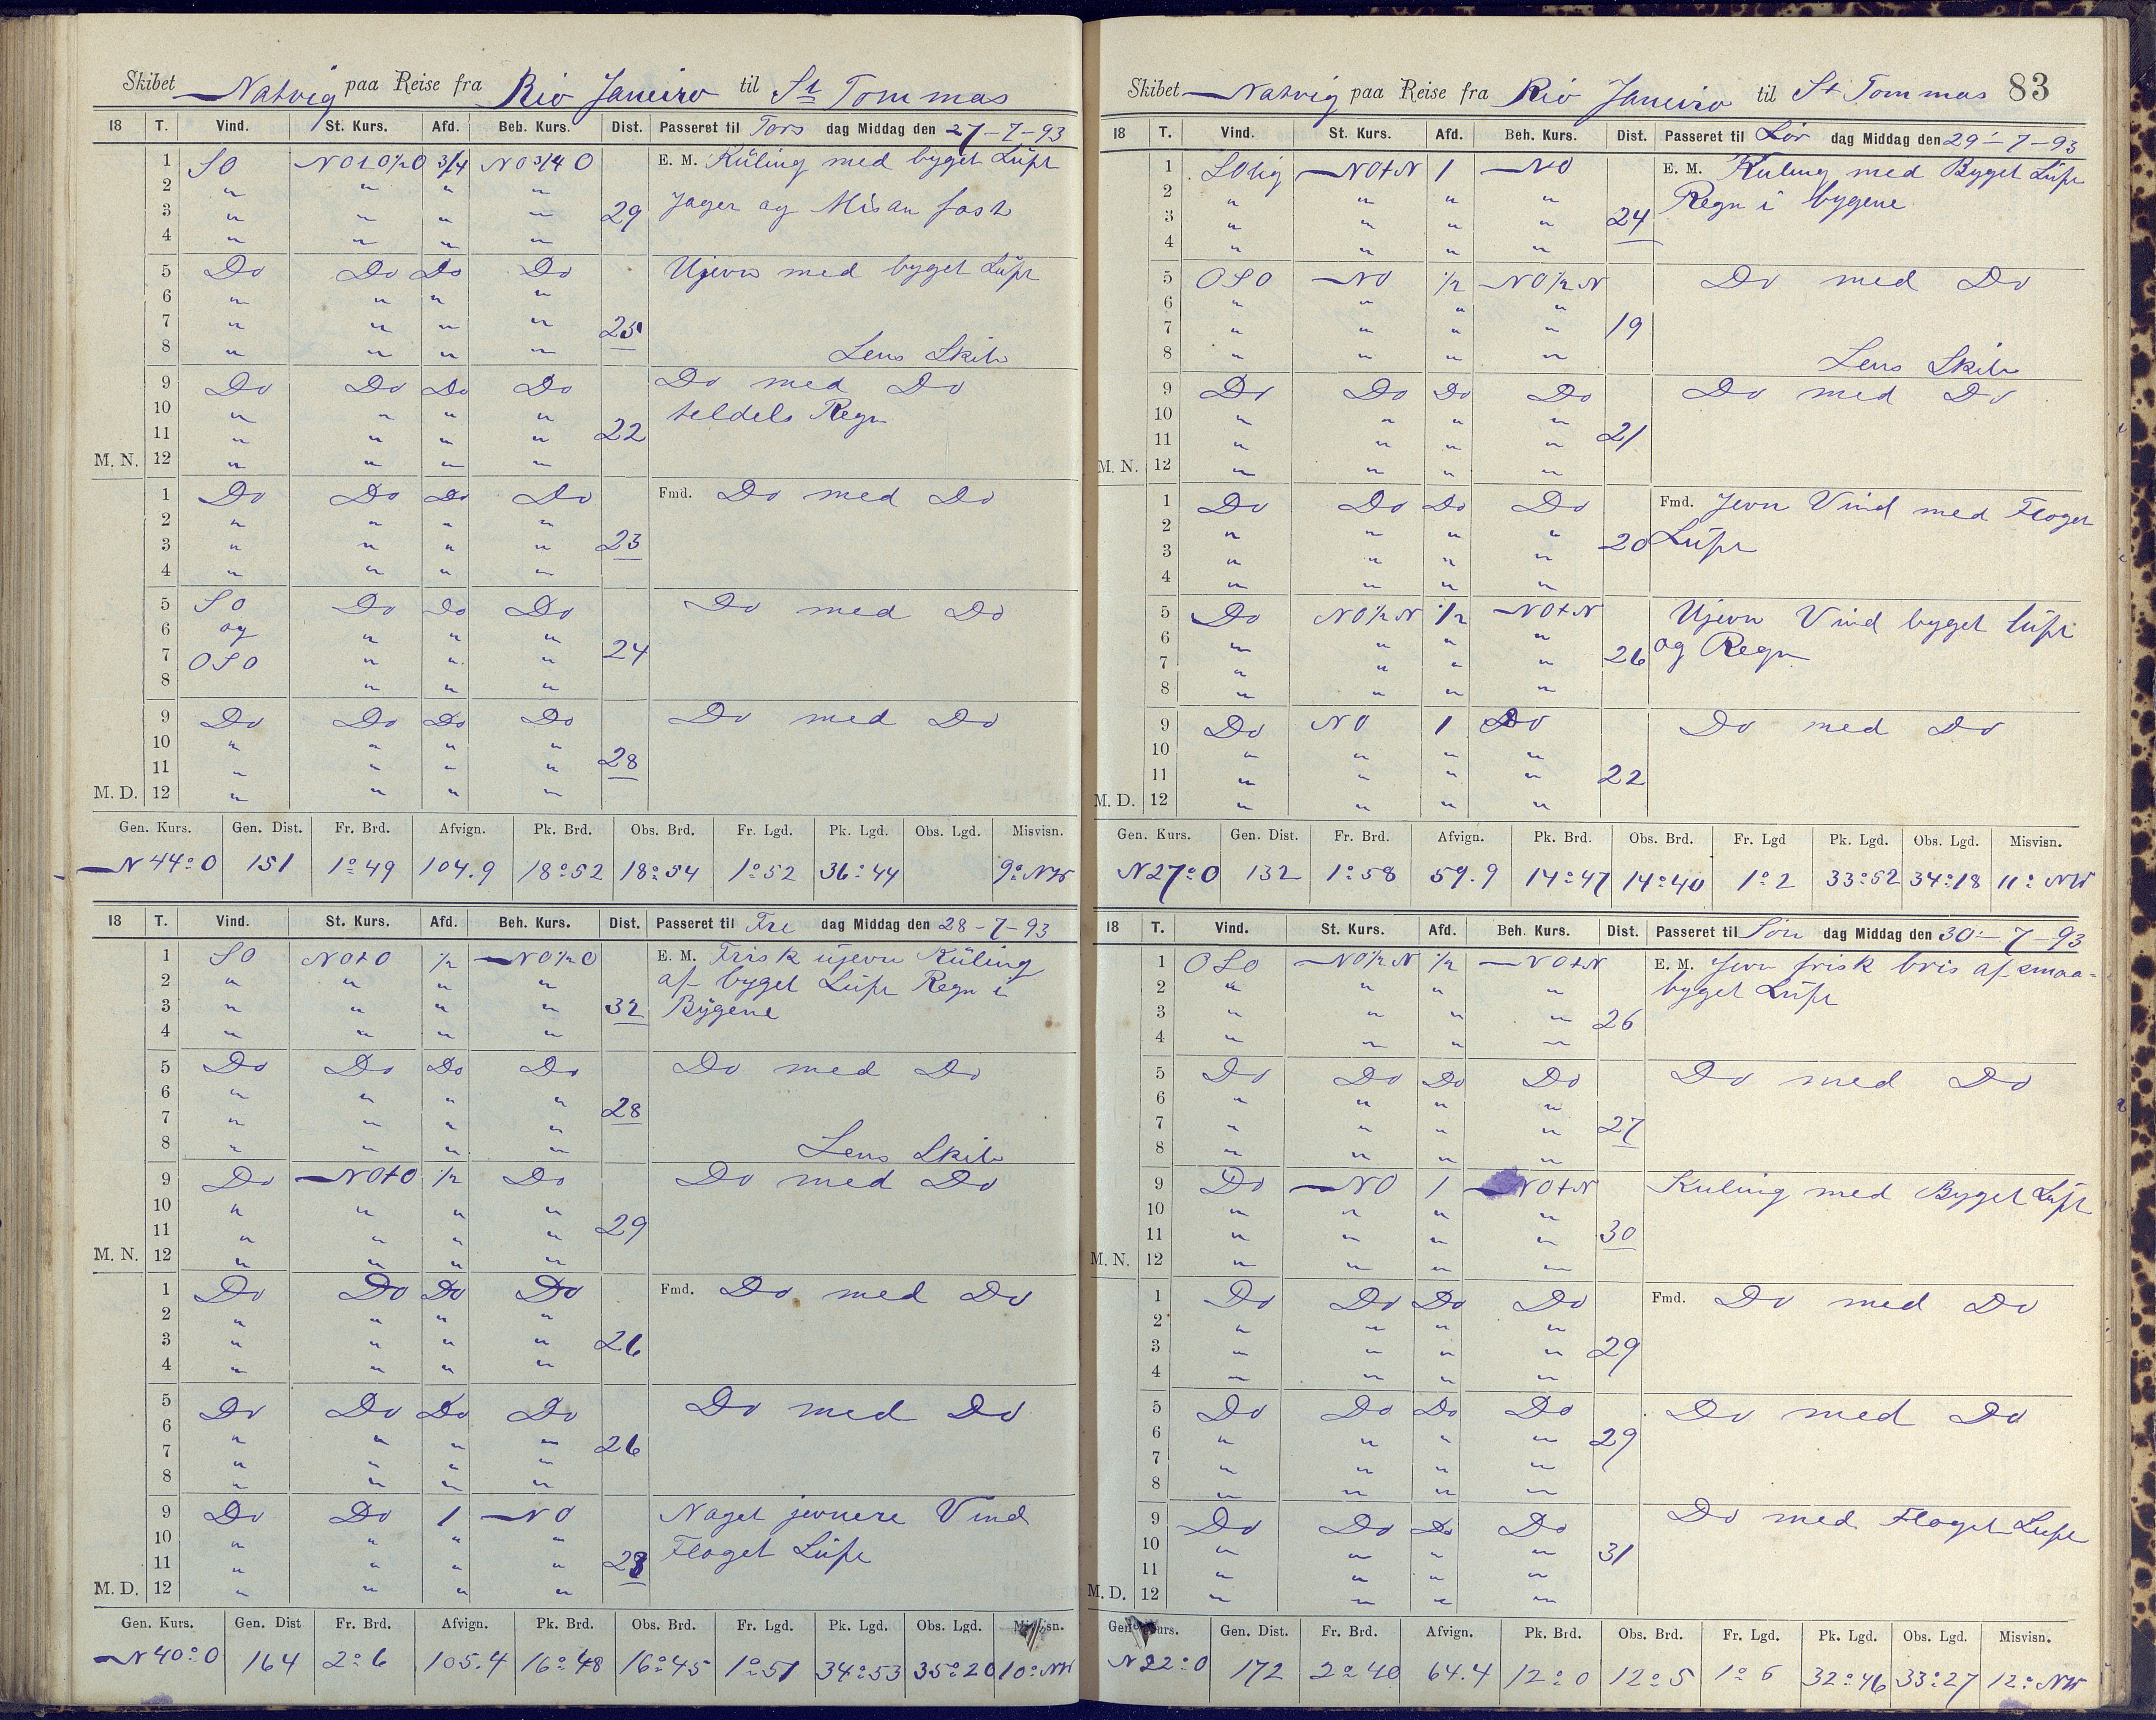 Skibet Natvig paa Reise fra Rio Janeiro til St Tommas
18 T. Vind. St. Kurs. Afd. Beh. Kurs. Dist. Passeret til Tors dag Middag den 27-7-93
1 SO NOtO½O 3/4 NO3/4O E. M. Küling med byget Lüft
2 " " " "
3 " " " " 29 Jager og Misan fast
4 " " " "
5 Do Do Do Do Ujevn med byget Lüft
6 " " " "
7 " " " " 25
8 " " " " Lens Skib
9 Do Do Do Do Do med Do
10 " " " " teldels Regn
11 " " " " 22
M. N. 12 " " " "
1 Do Do Do Do Fmd. Do med Do
2 " " " "
3 " " " " 23
4 " " " "
5 SO Do Do Do Do med Do
6 og " " "
7 OSO " " " 24
8 " " "
9 Do Do Do Do Do med Do
10 " " " "
11 " " " " 28
M. D. 12 " " " "
Gen. Kurs. Gen. Dist. Fr. Brd. Afvign. Pk. Brd. Obs. Brd. Fr. Lgd. Pk. Lgd. Obs. Lgd. Misvisn.
N 44°O 151 1°49 104.9 18°52 18°54 1°52 36°44 9° NW
18 T. Vind. St. Kurs. Afd. Beh. Kurs. Dist. Passeret til Fre dag Middag den 28-7-93
1 SO NOtO ½ NO½O E. M. Frisk üjevn Küling
2 " " " " af byget Lüft Regn i
3 " " " " 32 Bÿgene
4 " " " "
5 Do Do Do Do Do med Do
6 " " " "
7 " " " " 28
8 " " " " Lens Skib
9 Do NOtO ½ Do Do med Do
10 " " " "
11 " " " " 29
M. N. 12 " " " "
1 Do Do Do Do Fmd. Do med Do
2 " " " "
3 " " " " 26
4 " " " "
5 Do Do Do Do Do med Do
6 " " " " 26
7 " " " "
8 " " " "
9 Do Do 1 NO Naget jevnere Vind
10 " " " "
11 " " " " 23 Flaget Lüft
M. D. 12 " " " "
Gen. Kurs. Gen. Dist Fr. Brd. Afvign. Pk. Brd. Obs. Brd. Fr. Lgd. Pk. Lgd. Obs. Lgd. Misvisn.
N 40°O 164 2°6 105.4 16°48 16°45 1°51 34°53 35°20 10° NW
Skibet Natvig paa Reise fra Rio Janeiro til St Tommas 83
18 T. Vind. St. Kurs. Afd. Beh. Kurs. Dist. Passeret til Lör dag Middag den 29-7-93
1 SOlig NOtN 1 NO E. M. Kuling med Byget Lüft
2 " " " " Regn i bygene
3 " " " " 24
4 " " " "
5 OSO NO ½ NO½N Do med Do
6 " " "
7 " " " " 19
8 " " " " Lens Skib
9 Do Do Do Do Do med Do
10 " " " "
11 " " " " 21
M. N. 12 " " " "
1 Do Do Do Do Fmd. Jevn Vind med Flaget
2 " " " " 20 Lüft
3 " " " "
4 " " " "
5 Do NO½N ½ NOtN Ujevn Vind byget lüft
6 " " " " og Regn
7 " " " " 26
8 " " " "
9 Do NO 1 Do Do med Do
10 " " " "
11 " " " " 22
M. D. 12 " " " "
Gen. Kurs. Gen. Dist. Fr. Brd. Afvign. Pk. Brd. Obs. Brd. Fr. Lgd Pk. Lgd. Obs. Lgd. Misvisn.
N 27°O 132 1°58 59.9 14°47 14°40 1°2 33°52 34°18 11° NW
18 T. Vind. St. Kurs. Afd. Beh. Kurs. Dist. Passeret til Sön dag Middag den 30-7-93
1 OSO NO½N ½ NOtN E. M. Jevn frisk bris af smaa-
2 " " " " byget Lüft
3 " " " " 26
4 " " " "
5 Do Do Do Do Do med Do
6 " " " "
7 " " " " 27
8 " " " "
9 Do NO 1 NOtN Kuling med Byget Lüft
10 " " " "
11 " " " " 30
M. N. 12 " " " "
1 Do Do Do Do Fmd. Do med Do
2 " " " "
3 " " " " 29
4 " " " "
5 Do Do Do Do Do med Do
6 " " " " 29
7 " " " "
8 " " " "
9 Do Do Do Do Do med Flaget Lüft
10 " " " " 31
11 " " " "
M. D. 12 " " " "
Gen. Kurs. Gen. Dist. Fr. Brd. Afvign. Pk. Brd. Obs. Brd. Fr. Lgd. Pk. Lgd. Obs. Lgd. Misvisn.
N 22°O 172 2°40 64.4 12°0 12°5 1°6 32°46 33°27 12° NW